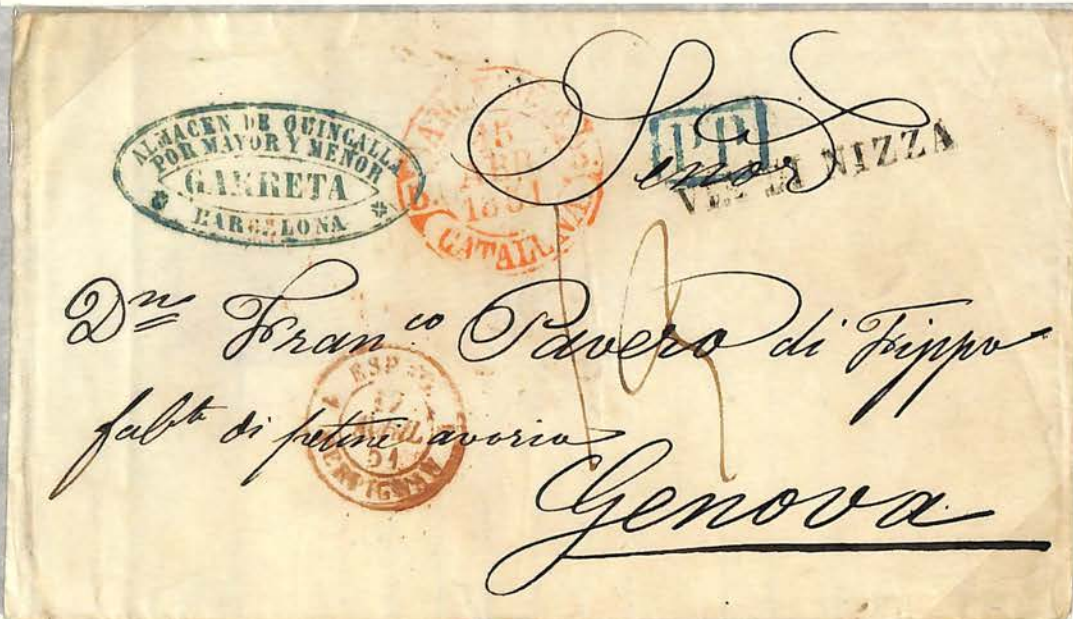 ALMACEN DE QUINCALLA
POR MAYOR Y MENOR
GARRETA
BARCELONA
15
ABR
1851
CATALUÑA
P.P.
VIA DI NIZZA
Señor
Dn Franco Pavero di Fippo
fabte di petini avorio
Genova
ESP.
17
AVRIL
51
PERPIGNAN